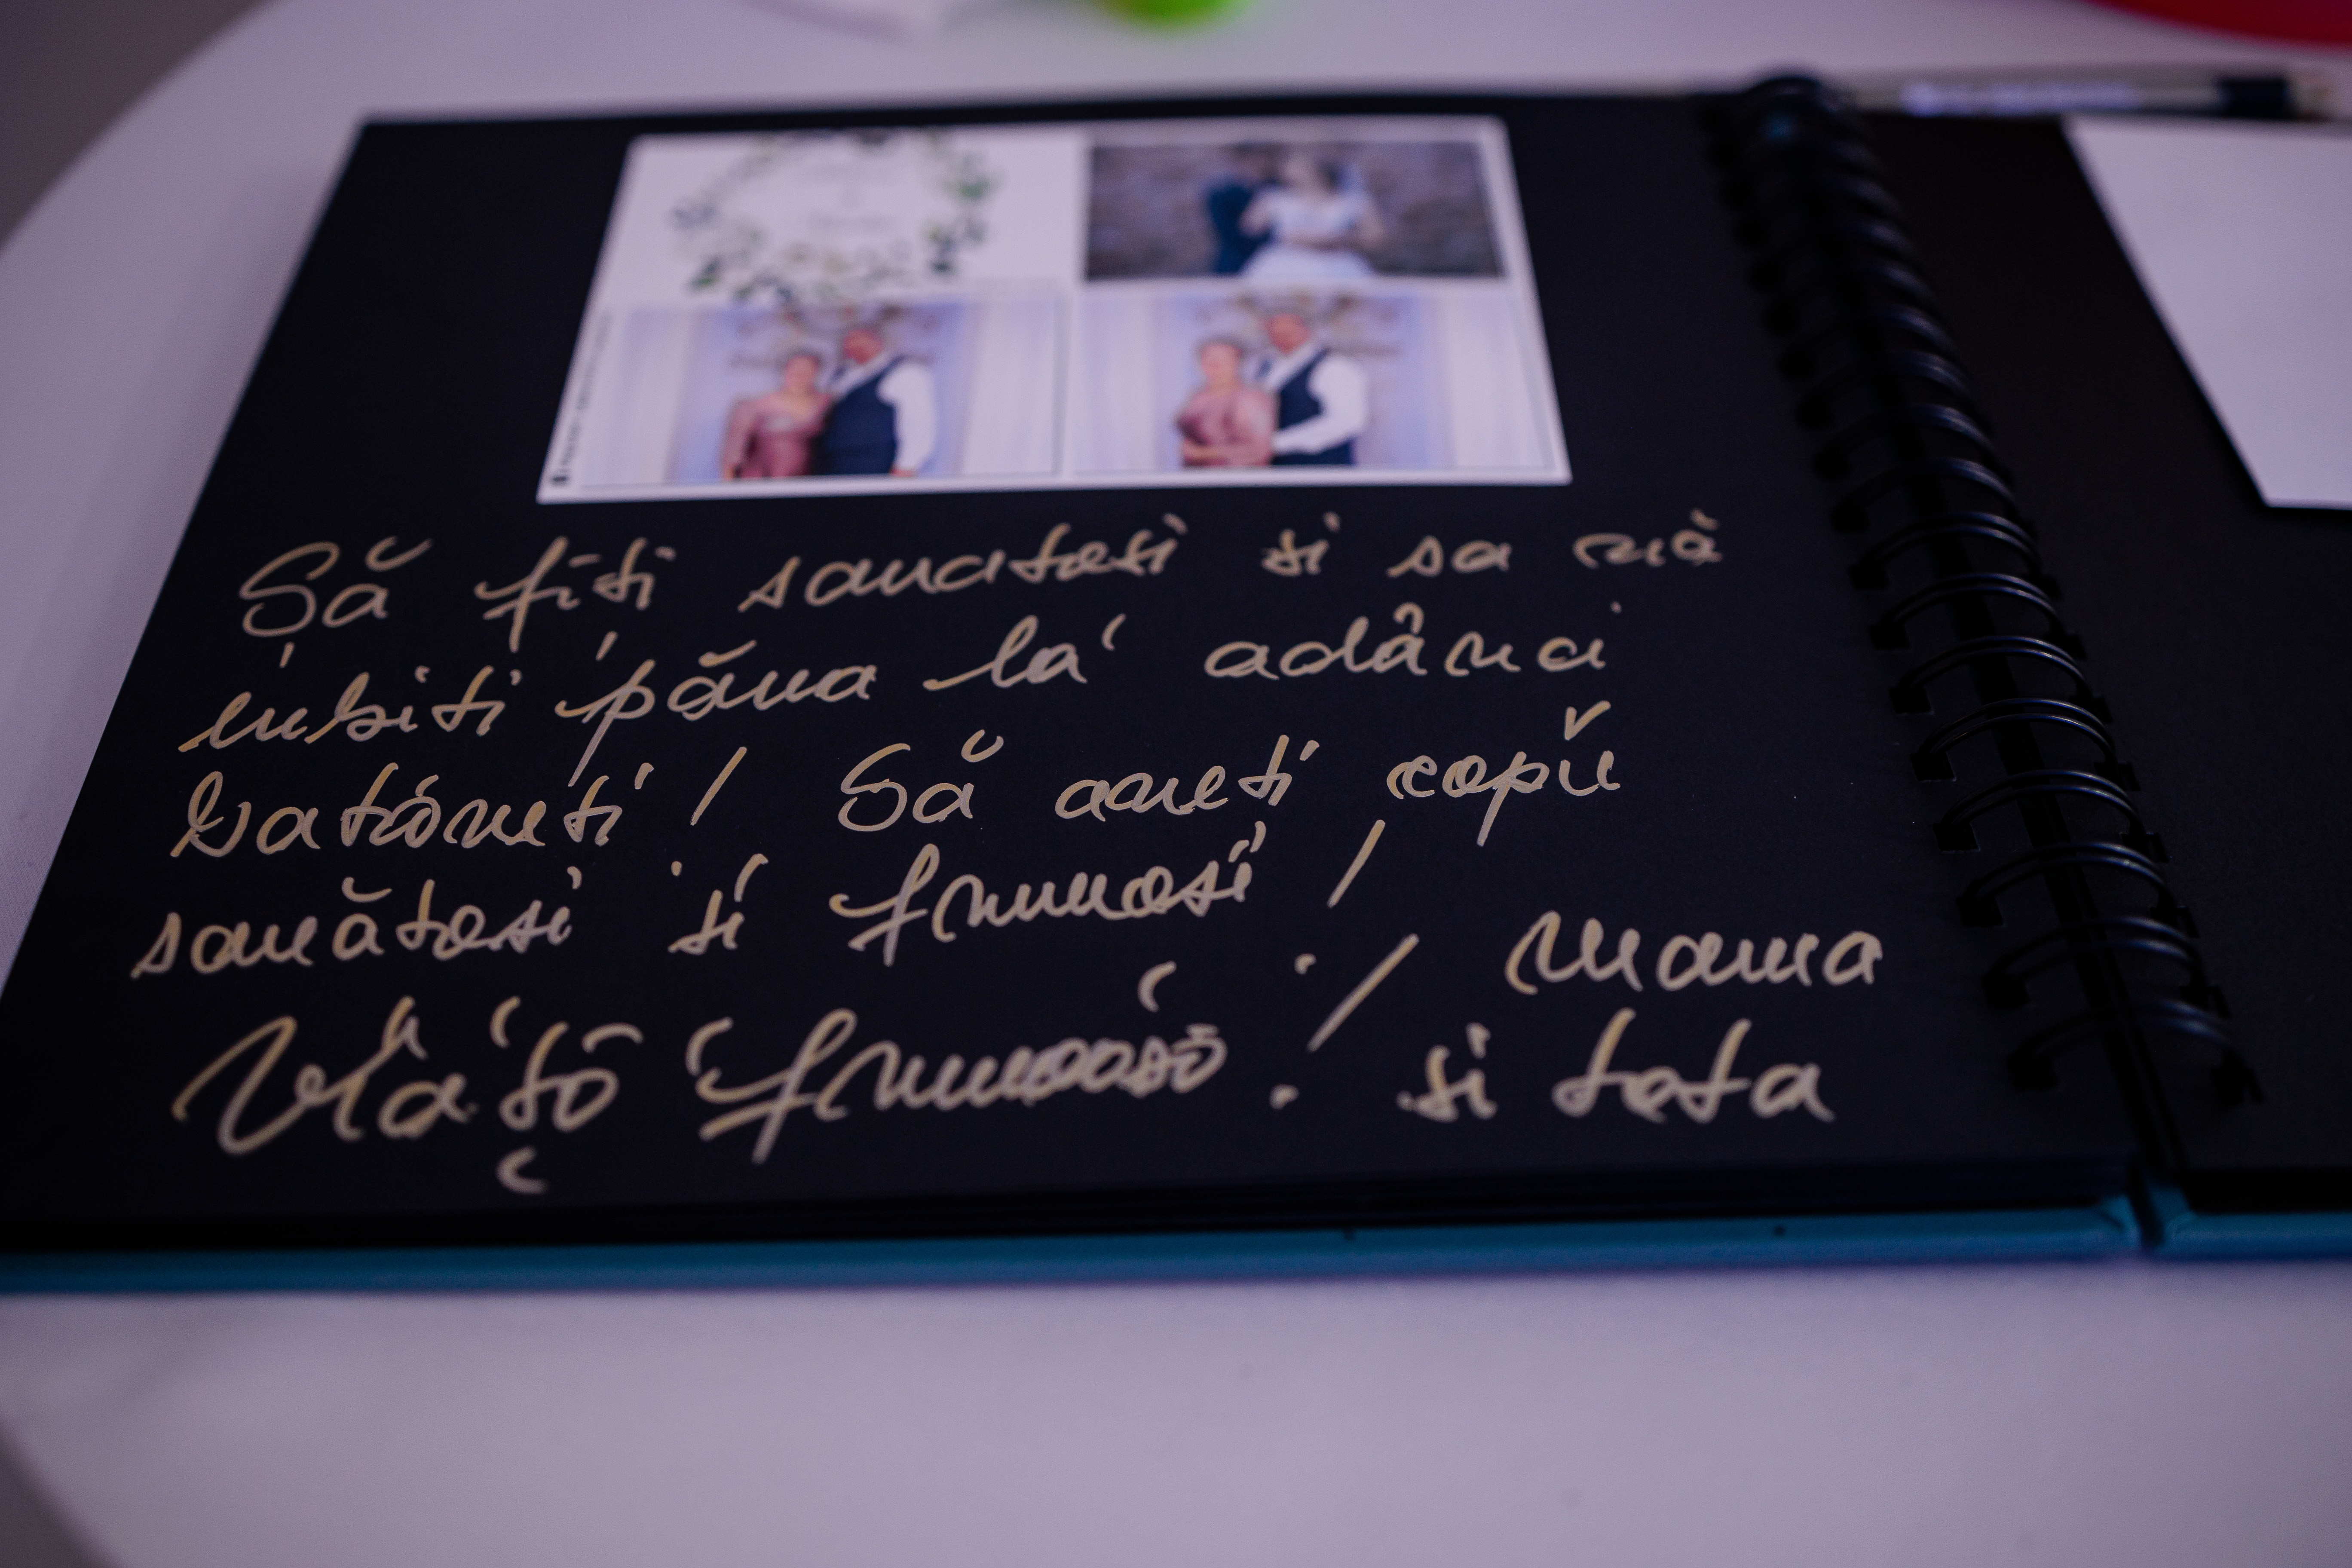 Să fiți sanatosi si sa vă
iubiti până la adânci
batrâneti! Să aveti copii
sanătosi si frumosi!
Viață frumoasă! Mama
si tata